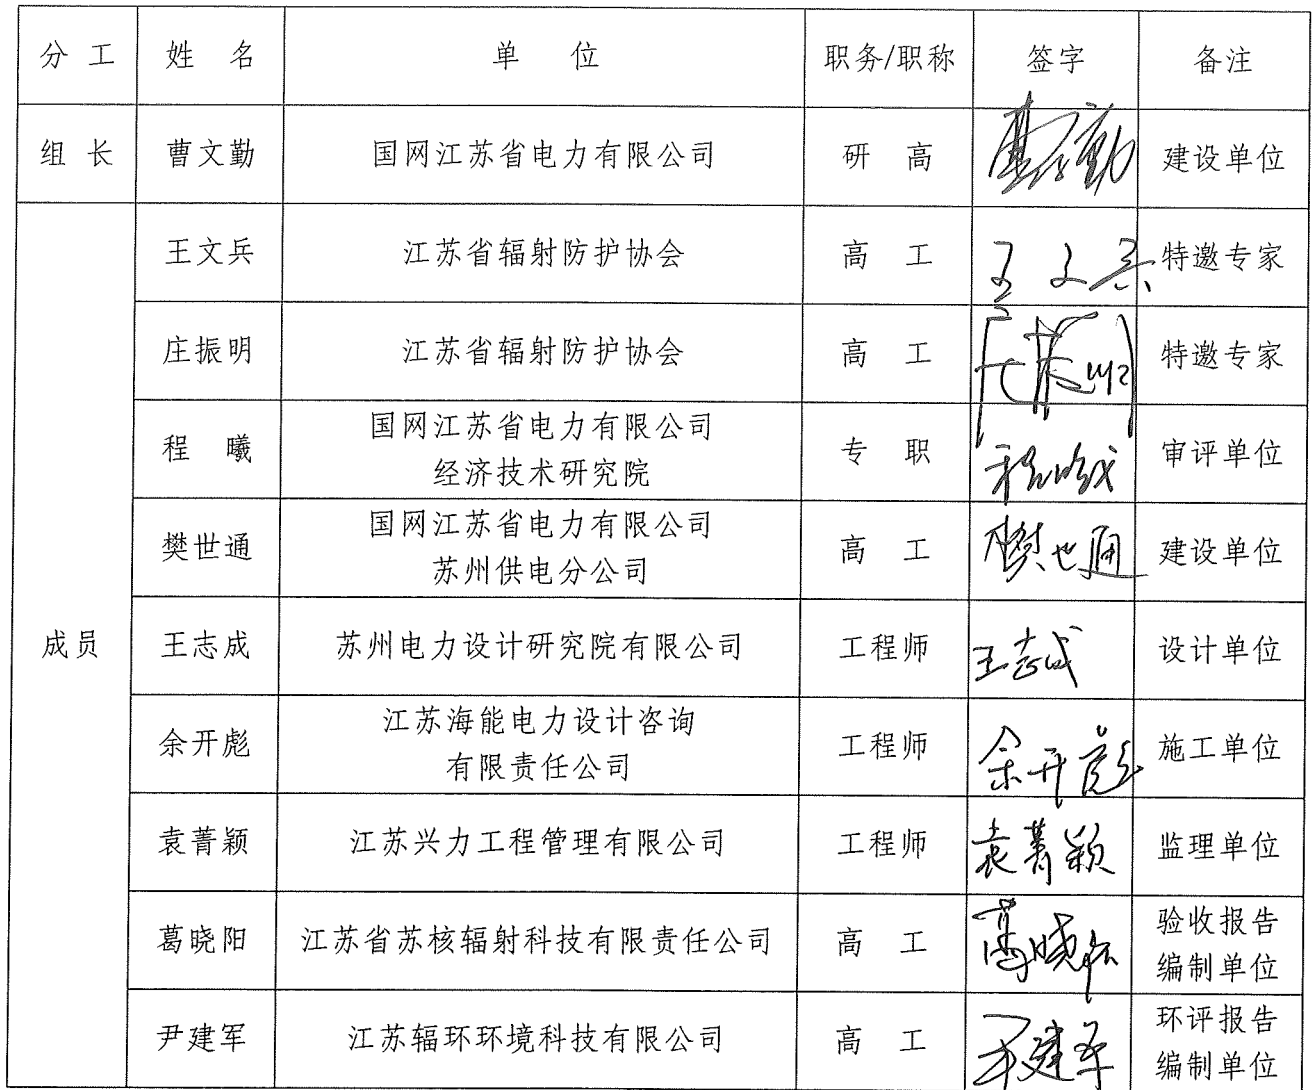 分工 姓名 单位 职务/职称 签字 备注
组长 曹文勤 国网江苏省电力有限公司 研高 曹文勤 建设单位
王文兵 江苏省辐射防护协会 高工 王文兵 特邀专家
庄振明 江苏省辐射防护协会 高工 庄振明 特邀专家
程曦 国网江苏省电力有限公司
经济技术研究院 专职 程曦 审评单位
樊世通 国网江苏省电力有限公司
苏州供电分公司 高工 樊世通 建设单位
成员 王志成 苏州电力设计研究院有限公司 工程师 王志成 设计单位
余开彪 江苏海能电力设计咨询
有限责任公司 工程师 余开彪 施工单位
袁菁颖 江苏兴力工程管理有限公司 工程师 袁菁颖 监理单位
葛晓阳 江苏省苏核辐射科技有限责任公司 高工 葛晓阳 验收报告
编制单位
尹建军 江苏辐环环境科技有限公司 高工 尹建军 环评报告
编制单位